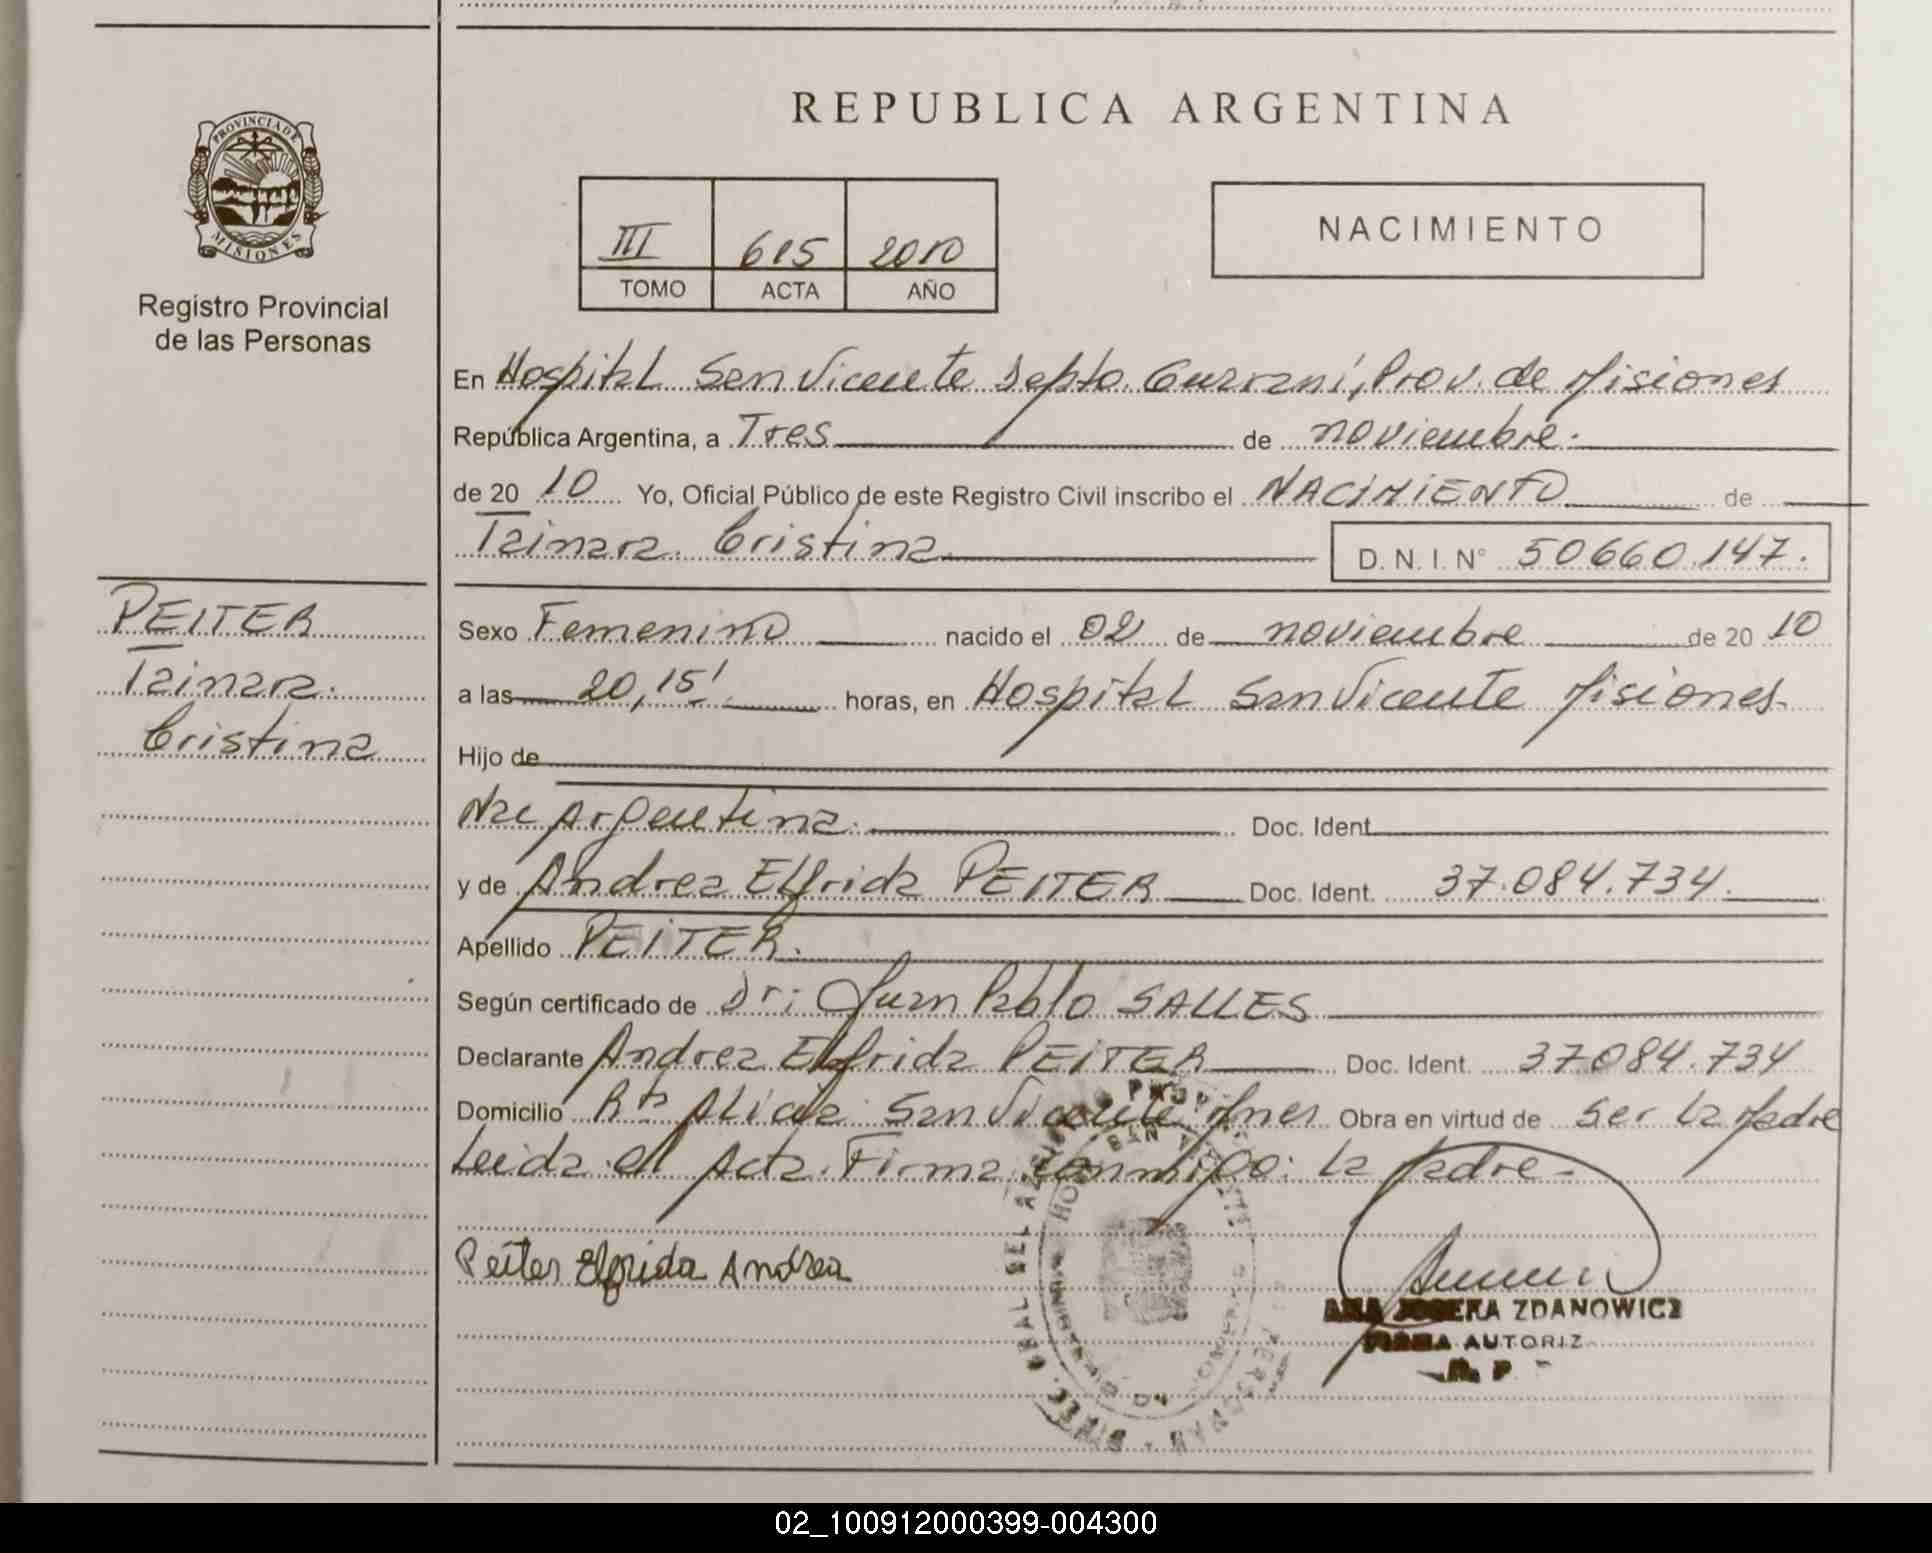 PROVINCIA DE
MISIONES
Registro Provincial
de las Personas
PEITER
Tainara
Cristina
REPUBLICA ARGENTINA
III 615 2010
TOMO ACTA AÑO
NACIMIENTO
En Hospital San Vicente Depto. Guarani, Prov. de Misiones
República Argentina, a Tres de noviembre.
de 20 10 Yo, Oficial Público de este Registro Civil inscribo el NACIMIENTO de
Tainara Cristina D. N. I. N° 50660.147.
Sexo Femenino nacido el 02 de noviembre de 20 10
a las 20,15' horas, en Hospital San Vicente Misiones.
Hijo de
Nac Argentina. Doc. Ident.
y de Andrea Elfrida PEITER Doc. Ident. 37.084.734.
Apellido PEITER.
Según certificado de Dr: Juan Pablo SALLES
Declarante Andrea Elfrida PEITER Doc. Ident. 37084.734
Domicilio Bº Alicia San Vicente Mnes. Obra en virtud de Ser La Madre
Leida el Acta. Firma conmigo: La Madre.
Peiter Elfrida Andrea
ANA JOSEFA ZDANOWICZ
FIRMA AUTORIZ
R. P.
02_100912000399-004300